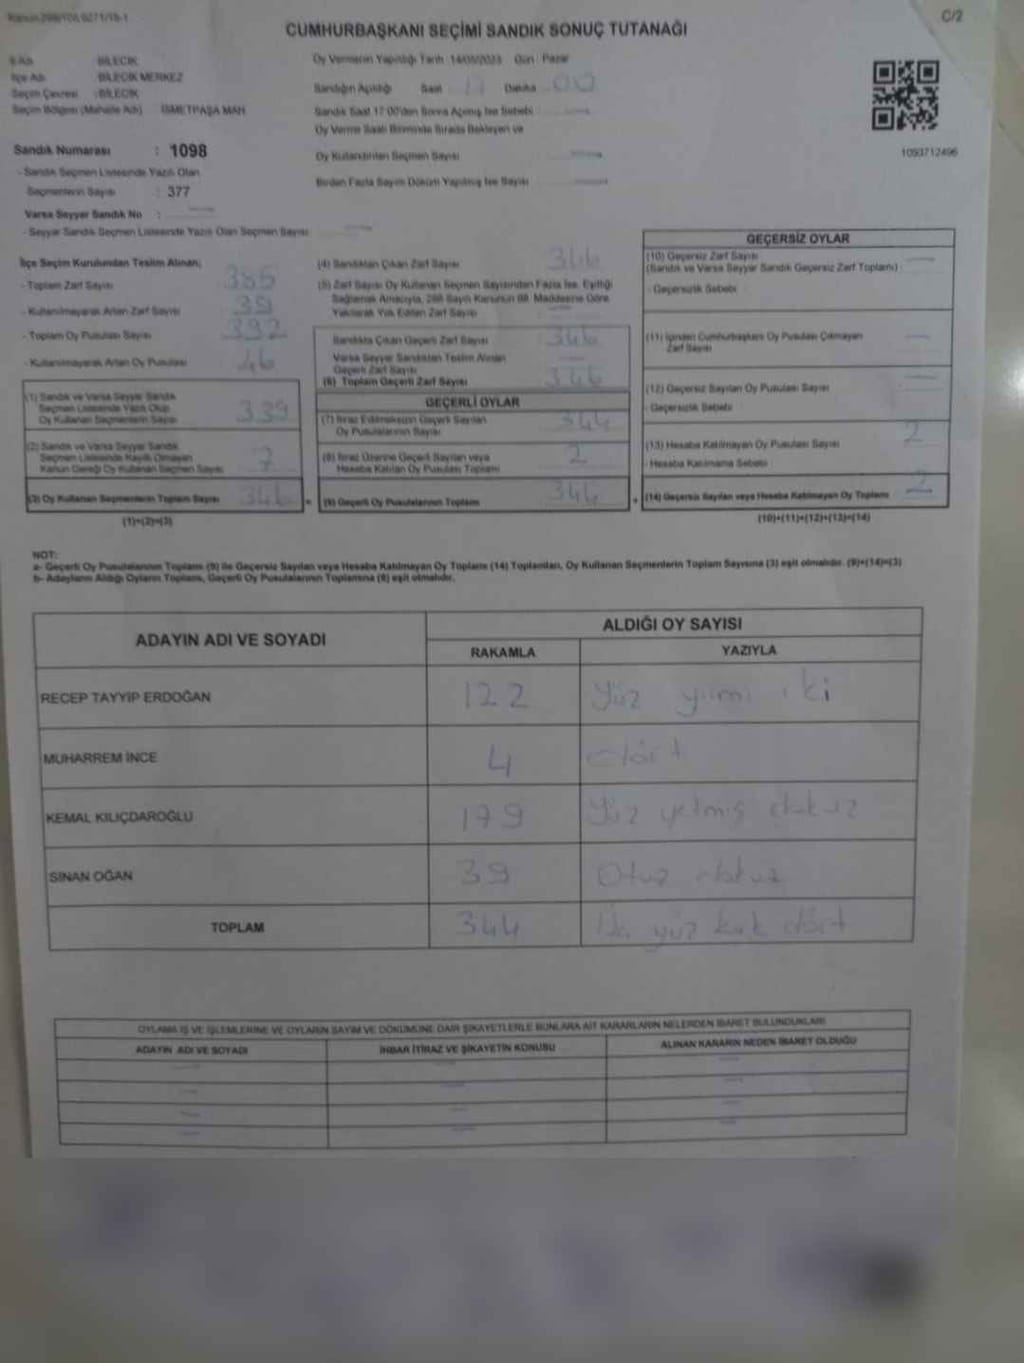 C/2
CUMHURBAŞKANI SEÇİMİ SANDIK SONUÇ TUTANAĞI
İli Adı BİLECİK
İlçe Adı BİLECİK MERKEZ
Seçim Çevresi : BİLECİK
Seçim Bölgesi (Mahalle Adı) İSMETPAŞA MAH
Sandık Numarası : 1098
- Sandık Seçmen Listesinde Yazılı Olan
Seçmenlerin Sayısı : 377
Varsa Seyyar Sandık No :
- Seyyar Sandık Seçmen Listesinde Yazılı Olan Seçmen Sayısı
Oy Vermenin Yapıldığı Tarih : 14/05/2023 Gün : Pazar
Sandığın Açıldığı Saat 17 Dakika 00
Sandık Saat 17:00'den Sonra Açılmış İse Sebebi
Oy Verme Saati Bitiminde Sırada Bekleyen ve
Oy Kullandırılan Seçmen Sayısı
Birden Fazla Sayım Döküm Yapılmış İse Sayısı
1093712496
İlçe Seçim Kurulundan Teslim Alınan;
- Toplam Zarf Sayısı 385
- Kullanılmayarak Artan Zarf Sayısı 39
- Toplam Oy Pusulası Sayısı 392
- Kullanılmayarak Artan Oy Pusulası 46
(1) Sandık ve Varsa Seyyar Sandık
Seçmen Listesinde Yazılı Olup
Oy Kullanan Seçmenlerin Sayısı 339
(2) Sandık ve Varsa Seyyar Sandık
Seçmen Listesinde Kayıtlı Olmayan
Kanun Gereği Oy Kullanan Seçmen Sayısı 7
(3) Oy Kullanan Seçmenlerin Toplam Sayısı 346
(1)+(2)=(3)
(4) Sandıktan Çıkan Zarf Sayısı 346
(5) Zarf Sayısı Oy Kullanan Seçmen Sayısından Fazla İse, Eşitliği
Sağlamak Amacıyla, 298 Sayılı Kanunun 98. Maddesine Göre
Yakılarak Yok Edilen Zarf Sayısı
Sandıkta Çıkan Geçerli Zarf Sayısı 346
Varsa Seyyar Sandıktan Teslim Alınan
Geçerli Zarf Sayısı
(6) Toplam Geçerli Zarf Sayısı 346
GEÇERLİ OYLAR
(7) İtiraz Edilmeksizin Geçerli Sayılan
Oy Pusulalarının Sayısı 344
(8) İtiraz Üzerine Geçerli Sayılan veya
Hesaba Katılan Oy Pusulası Toplamı 2
(9) Geçerli Oy Pusulalarının Toplamı 344
GEÇERSİZ OYLAR
(10) Geçersiz Zarf Sayısı
(Sandık ve Varsa Seyyar Sandık Geçersiz Zarf Toplamı)
- Geçersizlik Sebebi
(11) İçinden Cumhurbaşkanı Oy Pusulası Çıkmayan
Zarf Sayısı
(12) Geçersiz Sayılan Oy Pusulası Sayısı
- Geçersizlik Sebebi
(13) Hesaba Katılmayan Oy Pusulası Sayısı 2
- Hesaba Katılmama Sebebi
(14) Geçersiz Sayılan veya Hesaba Katılmayan Oy Toplamı 2
(10)+(11)+(12)+(13)=(14)
NOT:
a- Geçerli Oy Pusulalarının Toplamı (9) ile Geçersiz Sayılan veya Hesaba Katılmayan Oy Toplamı (14) Toplamları, Oy Kullanan Seçmenlerin Toplam Sayısına (3) eşit olmalıdır. (9)+(14)=(3)
b- Adayların Aldığı Oyların Toplamı, Geçerli Oy Pusulalarının Toplamına (9) eşit olmalıdır.
ADAYIN ADI VE SOYADI ALDIĞI OY SAYISI
RAKAMLA YAZIYLA
RECEP TAYYİP ERDOĞAN 122 Yüz yirmi iki
MUHARREM İNCE 4 dört
KEMAL KILIÇDAROĞLU 179 Yüz yetmiş dokuz
SİNAN OĞAN 39 Otuz dokuz
TOPLAM 344 yüz kırk dört
OYLAMA İŞ VE İŞLEMLERİNE VE OYLARIN SAYIM VE DÖKÜMÜNE DAİR ŞİKAYETLERLE BUNLARA AİT KARARLARIN NELERDEN İBARET BULUNDUKLARI
ADAYIN ADI VE SOYADI İHBAR İTİRAZ VE ŞİKAYETİN KONUSU ALINAN KARARIN NEDEN İBARET OLDUĞU